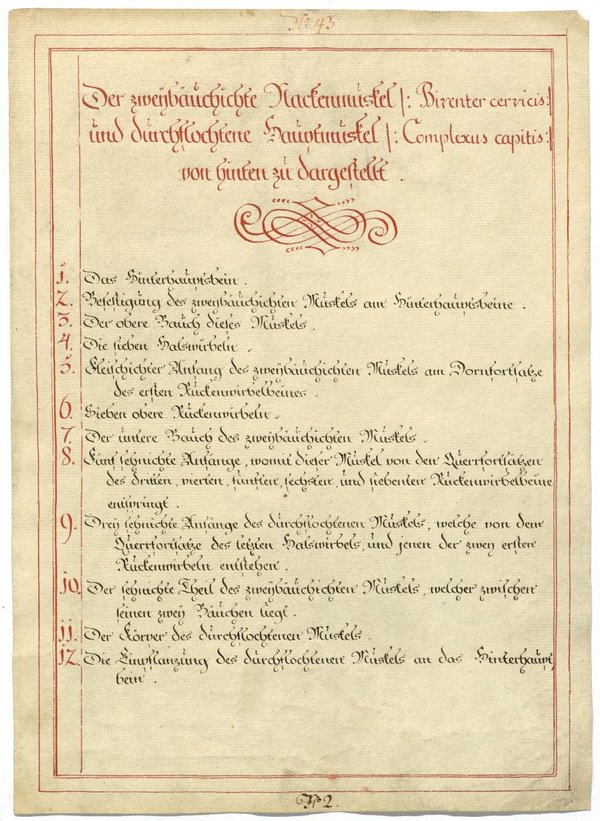 No 43
Der zweybäuchichte Nackenmuskel /: Biventer cervicis:/
und durchflochtene Hauptmuskel /: Complexus capitis:/
von hinten zu dargestellt.
1. Das Hinterhauptsbein.
2. Befestigung des zweybäuchichten Muskels am Hinterhauptsbeine.
3. Der obere Bauch dieses Muskels.
4. Die sieben Halswirbeln.
5. Fleischichter Anfang des zweybäuchichten Muskels am Dornfortsatze
des ersten Rückenwirbelbeines.
6. Sieben obere Rückenwirbeln.
7. Der untere Bauch des zweybäuchichten Muskels.
8. Fünf sehnichte Anfänge, womit dieser Muskel von den Querrfortsätzen
des dritten, vierten, fünften, sechsten, und siebenten Rückenwirbelbeine
entspringt.
9. Drey sehnichte Anfänge des durchflochtenen Muskels, welche von dem
Querrfortsatze des letzten Halswirbels, und jenen der zwey ersten
Rückenwirbeln entstehen.
10. Der sehnichte Theil des zweybäuchichten Muskels, welcher zwischen
seinen zwey Bäuchen liegt.
11. Der Körper des durchflochtenen Muskels.
12. Die Einpflanzung des durchflochtenen Muskels an das Hinterhaupt
bein.
No 2.